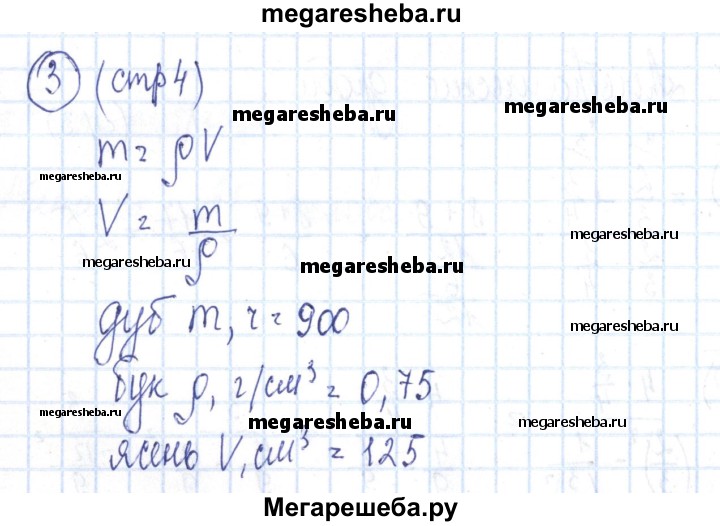 megaresheba.ru
3 (стр 4)
megaresheba.ru
megaresheba.ru
m = ρV
megaresheba.ru
megaresheba.ru
V = m/ρ
megaresheba.ru
megaresheba.ru
дуб m, г = 900
megaresheba.ru
бук ρ, г/см³ = 0,75
megaresheba.ru
megaresheba.ru
megaresheba.ru
ясень V, см³ = 125
Мегарешеба.ру